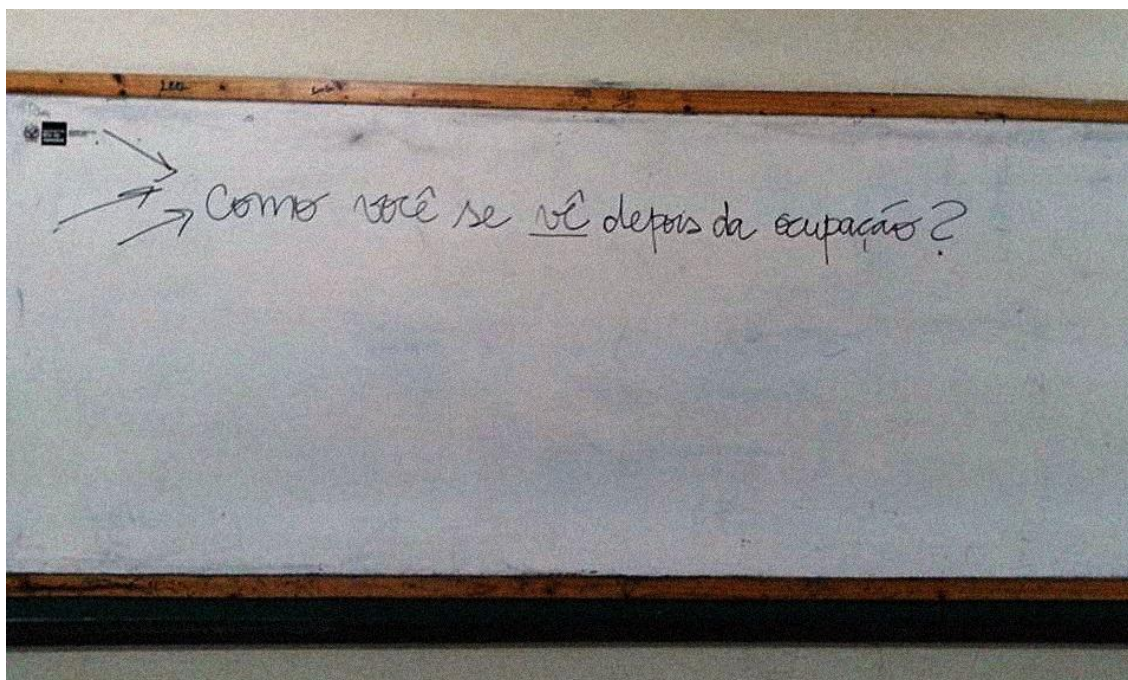 Como você se vê depois da ocupação?